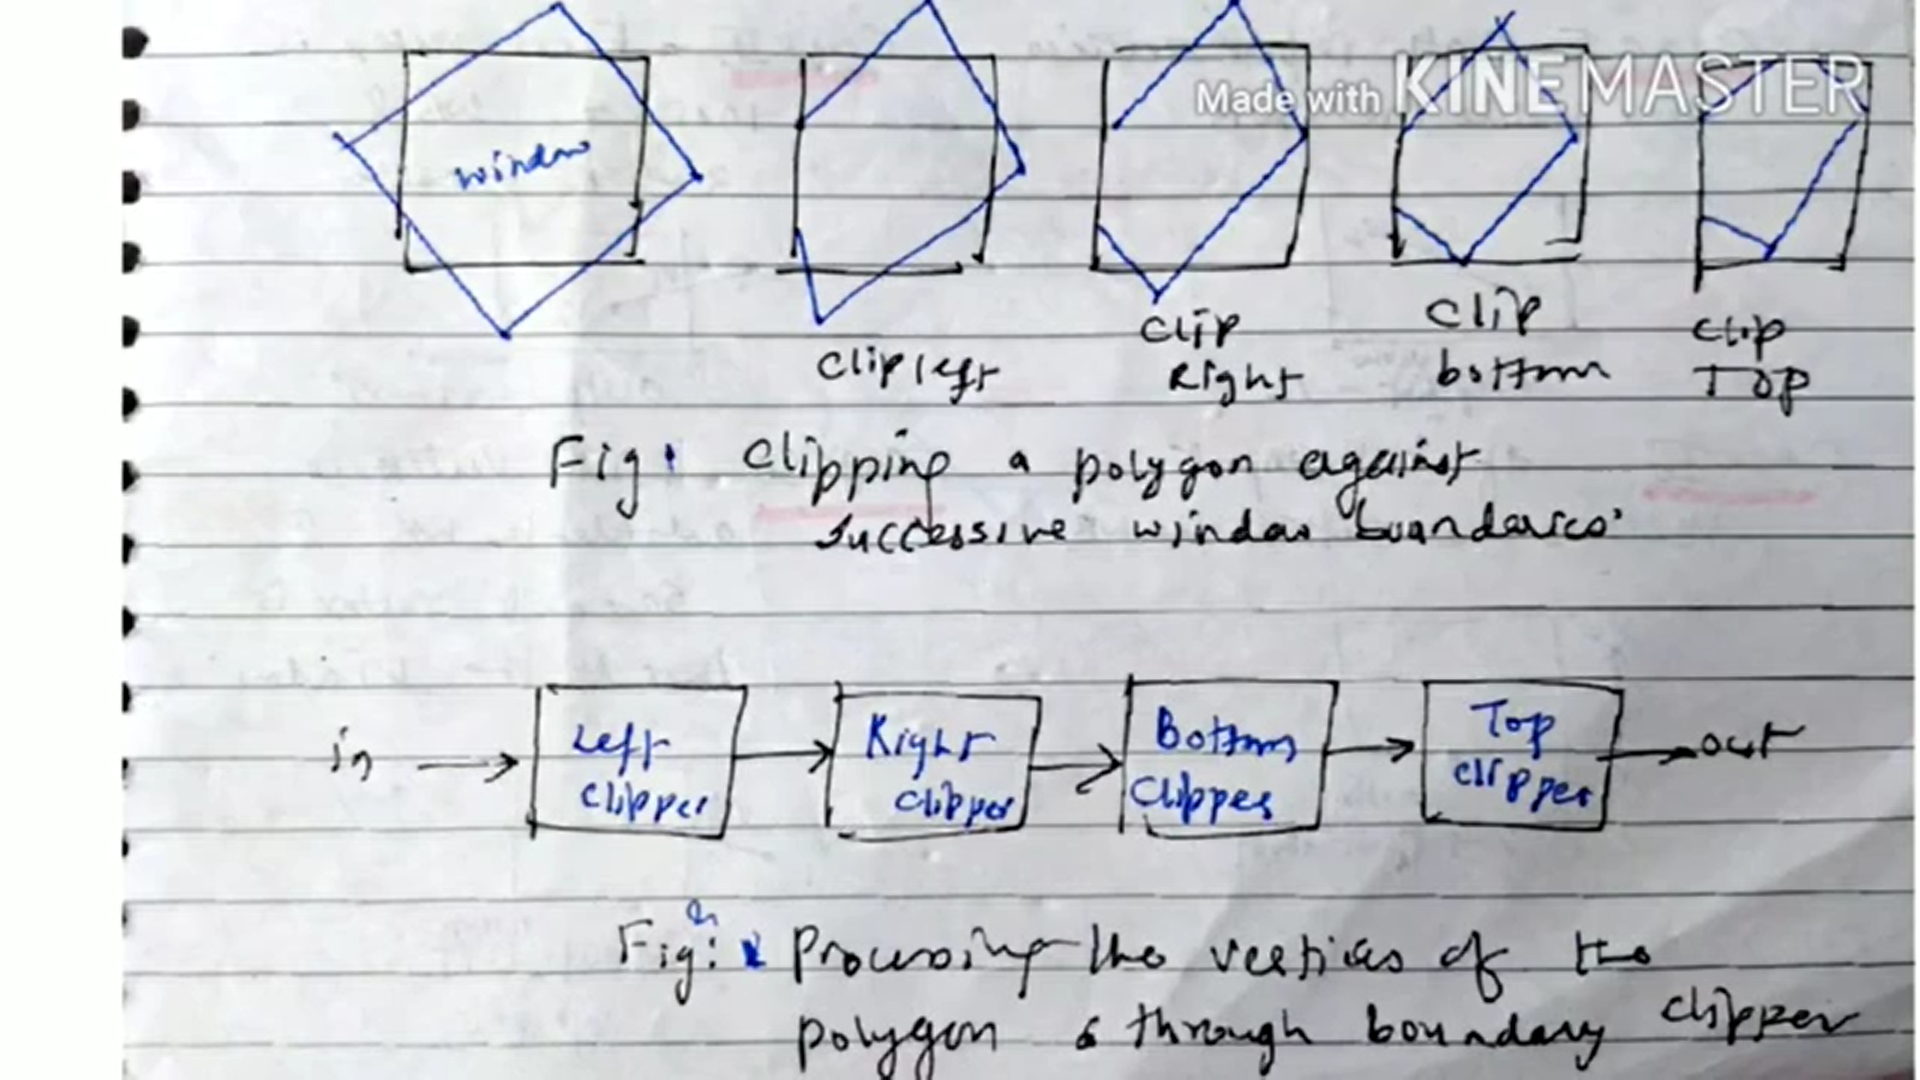 Made with KINEMASTER
window
Clip left
Clip Right
Clip bottom
Clip TOP
Fig 1 Clipping a polygon against
successive window boundaries
in
Left clipper
Right clipper
Bottom Clipper
Top clipper
out
Fig: 2 Processing the vertices of the
polygon through boundary clipper